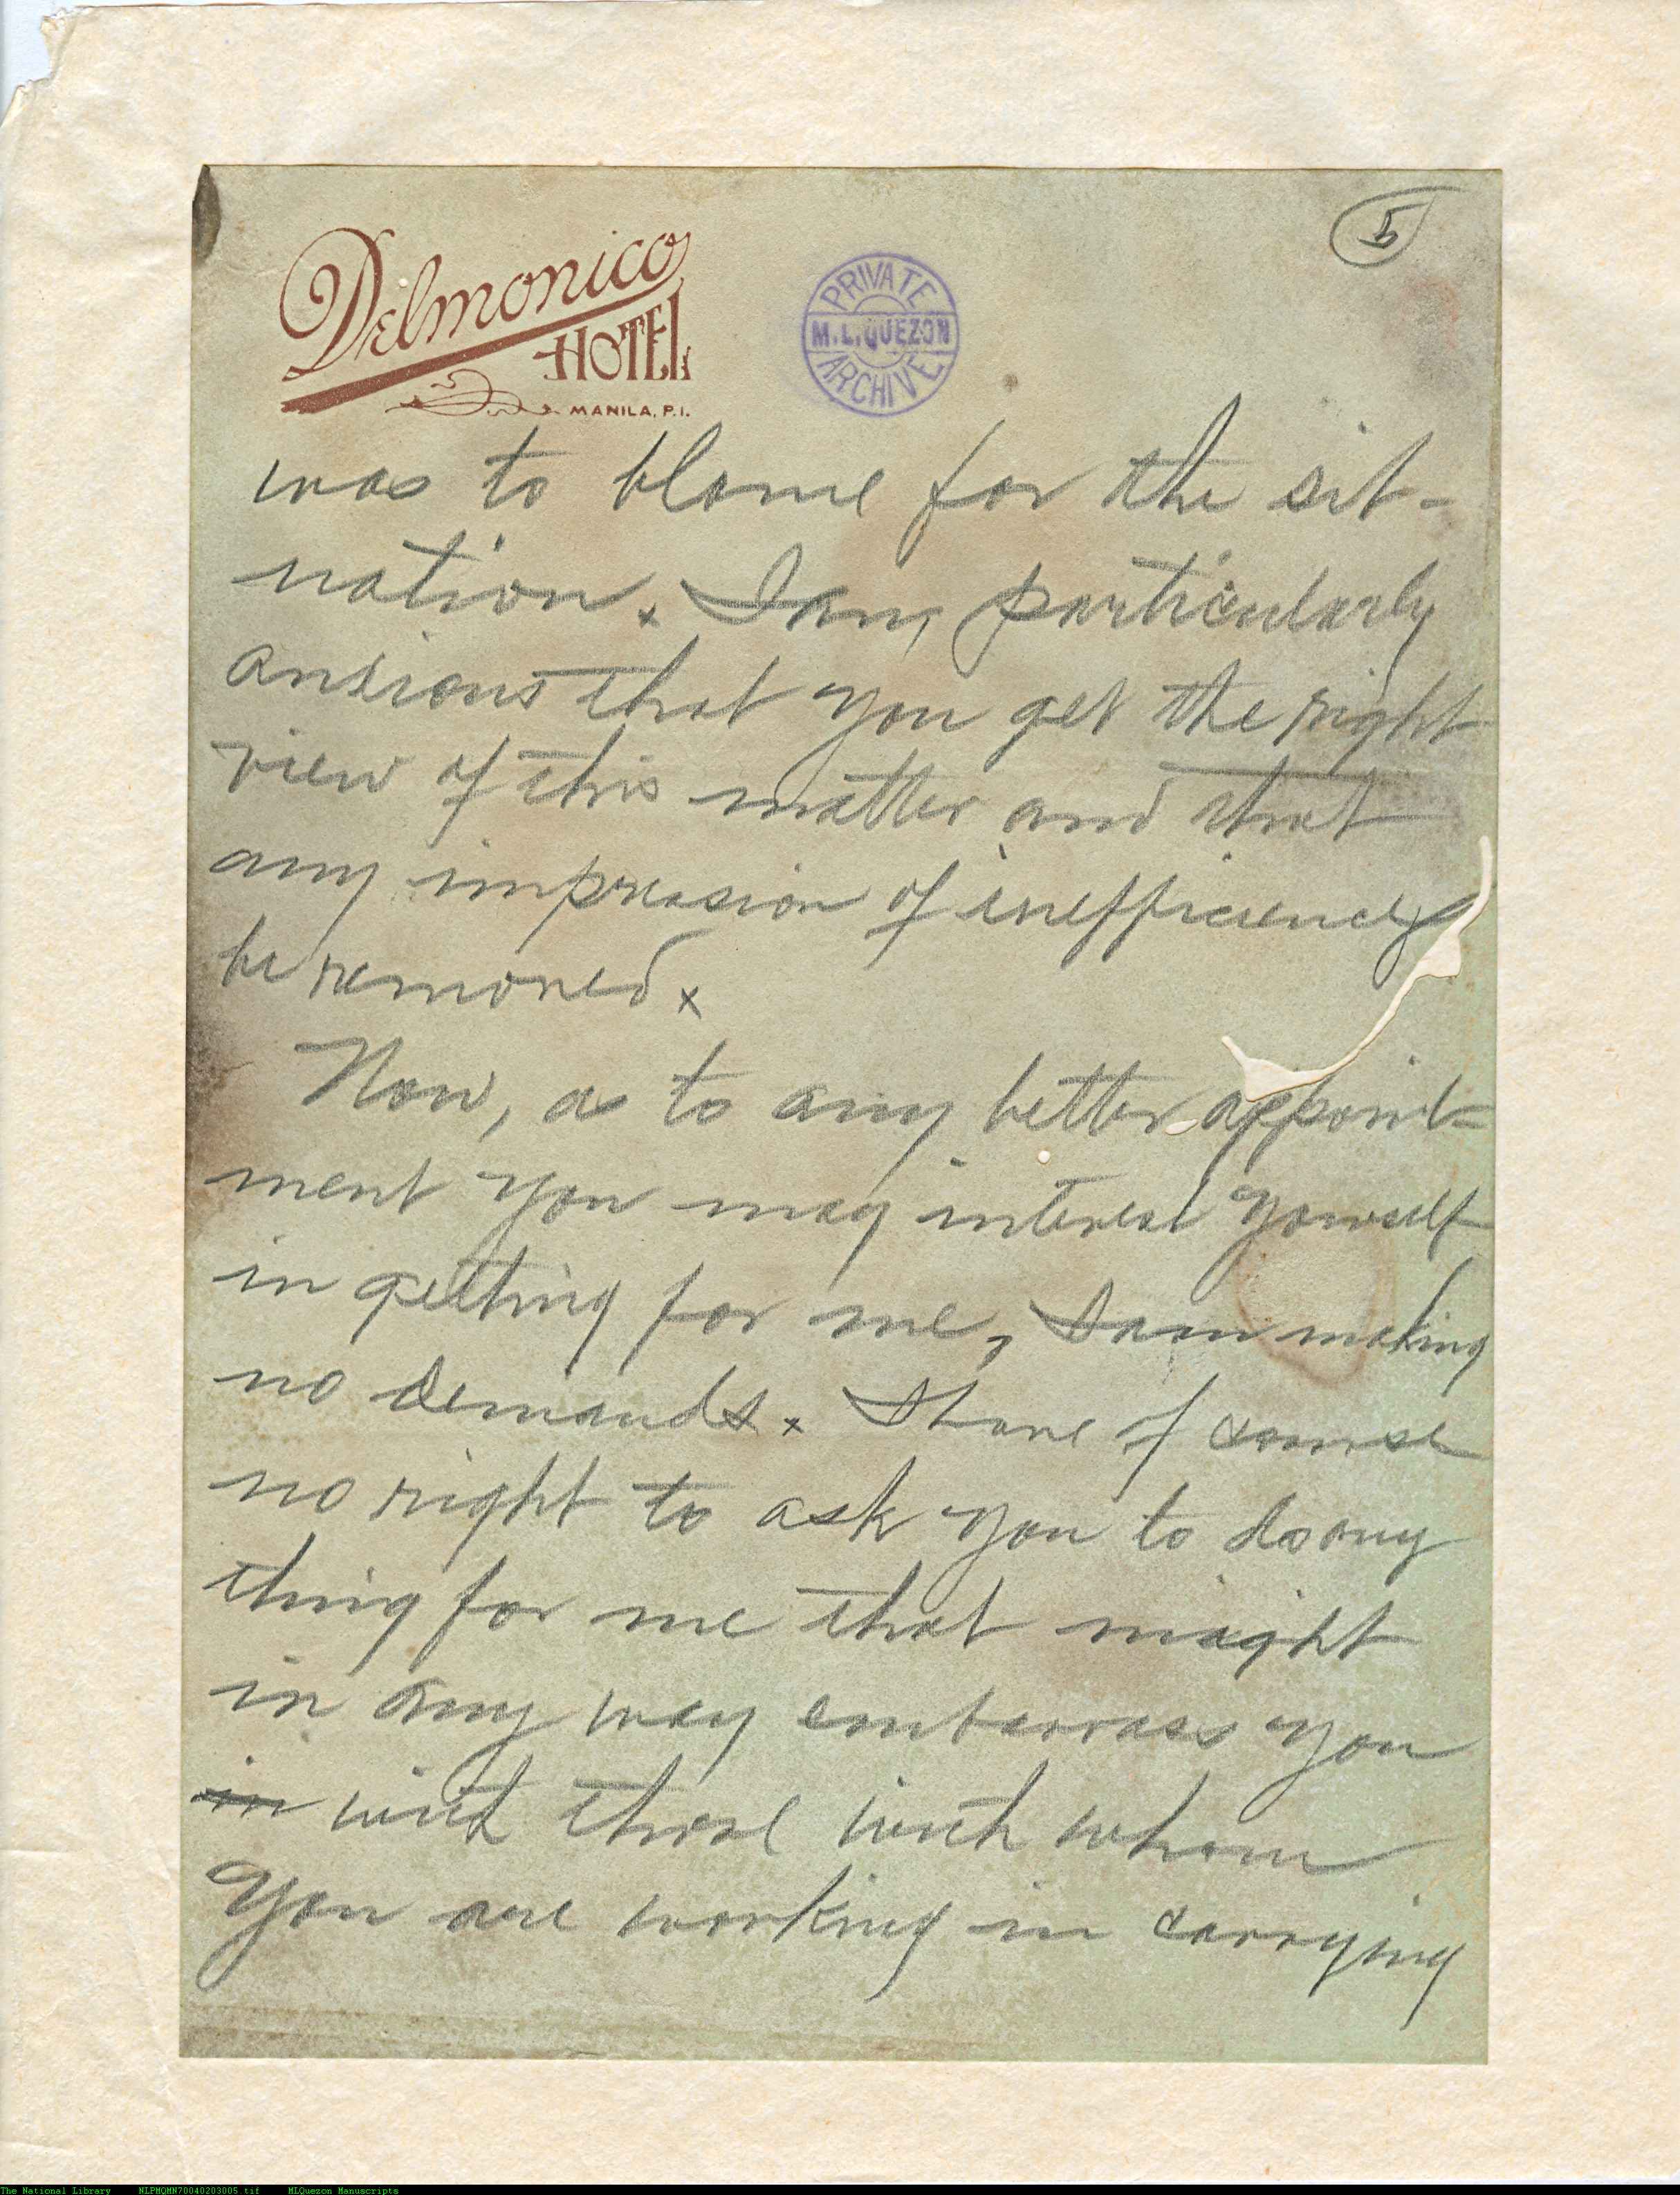 5
Delmonico
HOTEL
MANILA, P.I.
PRIVATE
M.L. QUEZON
ARCHIVE
was to blame for the sit-
uation. I am particularly
anxious that you get the right
view of this matter and that
any impression of inefficiency
be removed.
Now, as to any better appoint-
ment you may interest yourself
in getting for me, I am making
no demands. I have of course
no right to ask you to do any
thing for me that might
in any way embarrass you
in with those with whom
you are working in carrying
The National Library NLPMQMN70040203005.tif MLQuezon Manuscripts